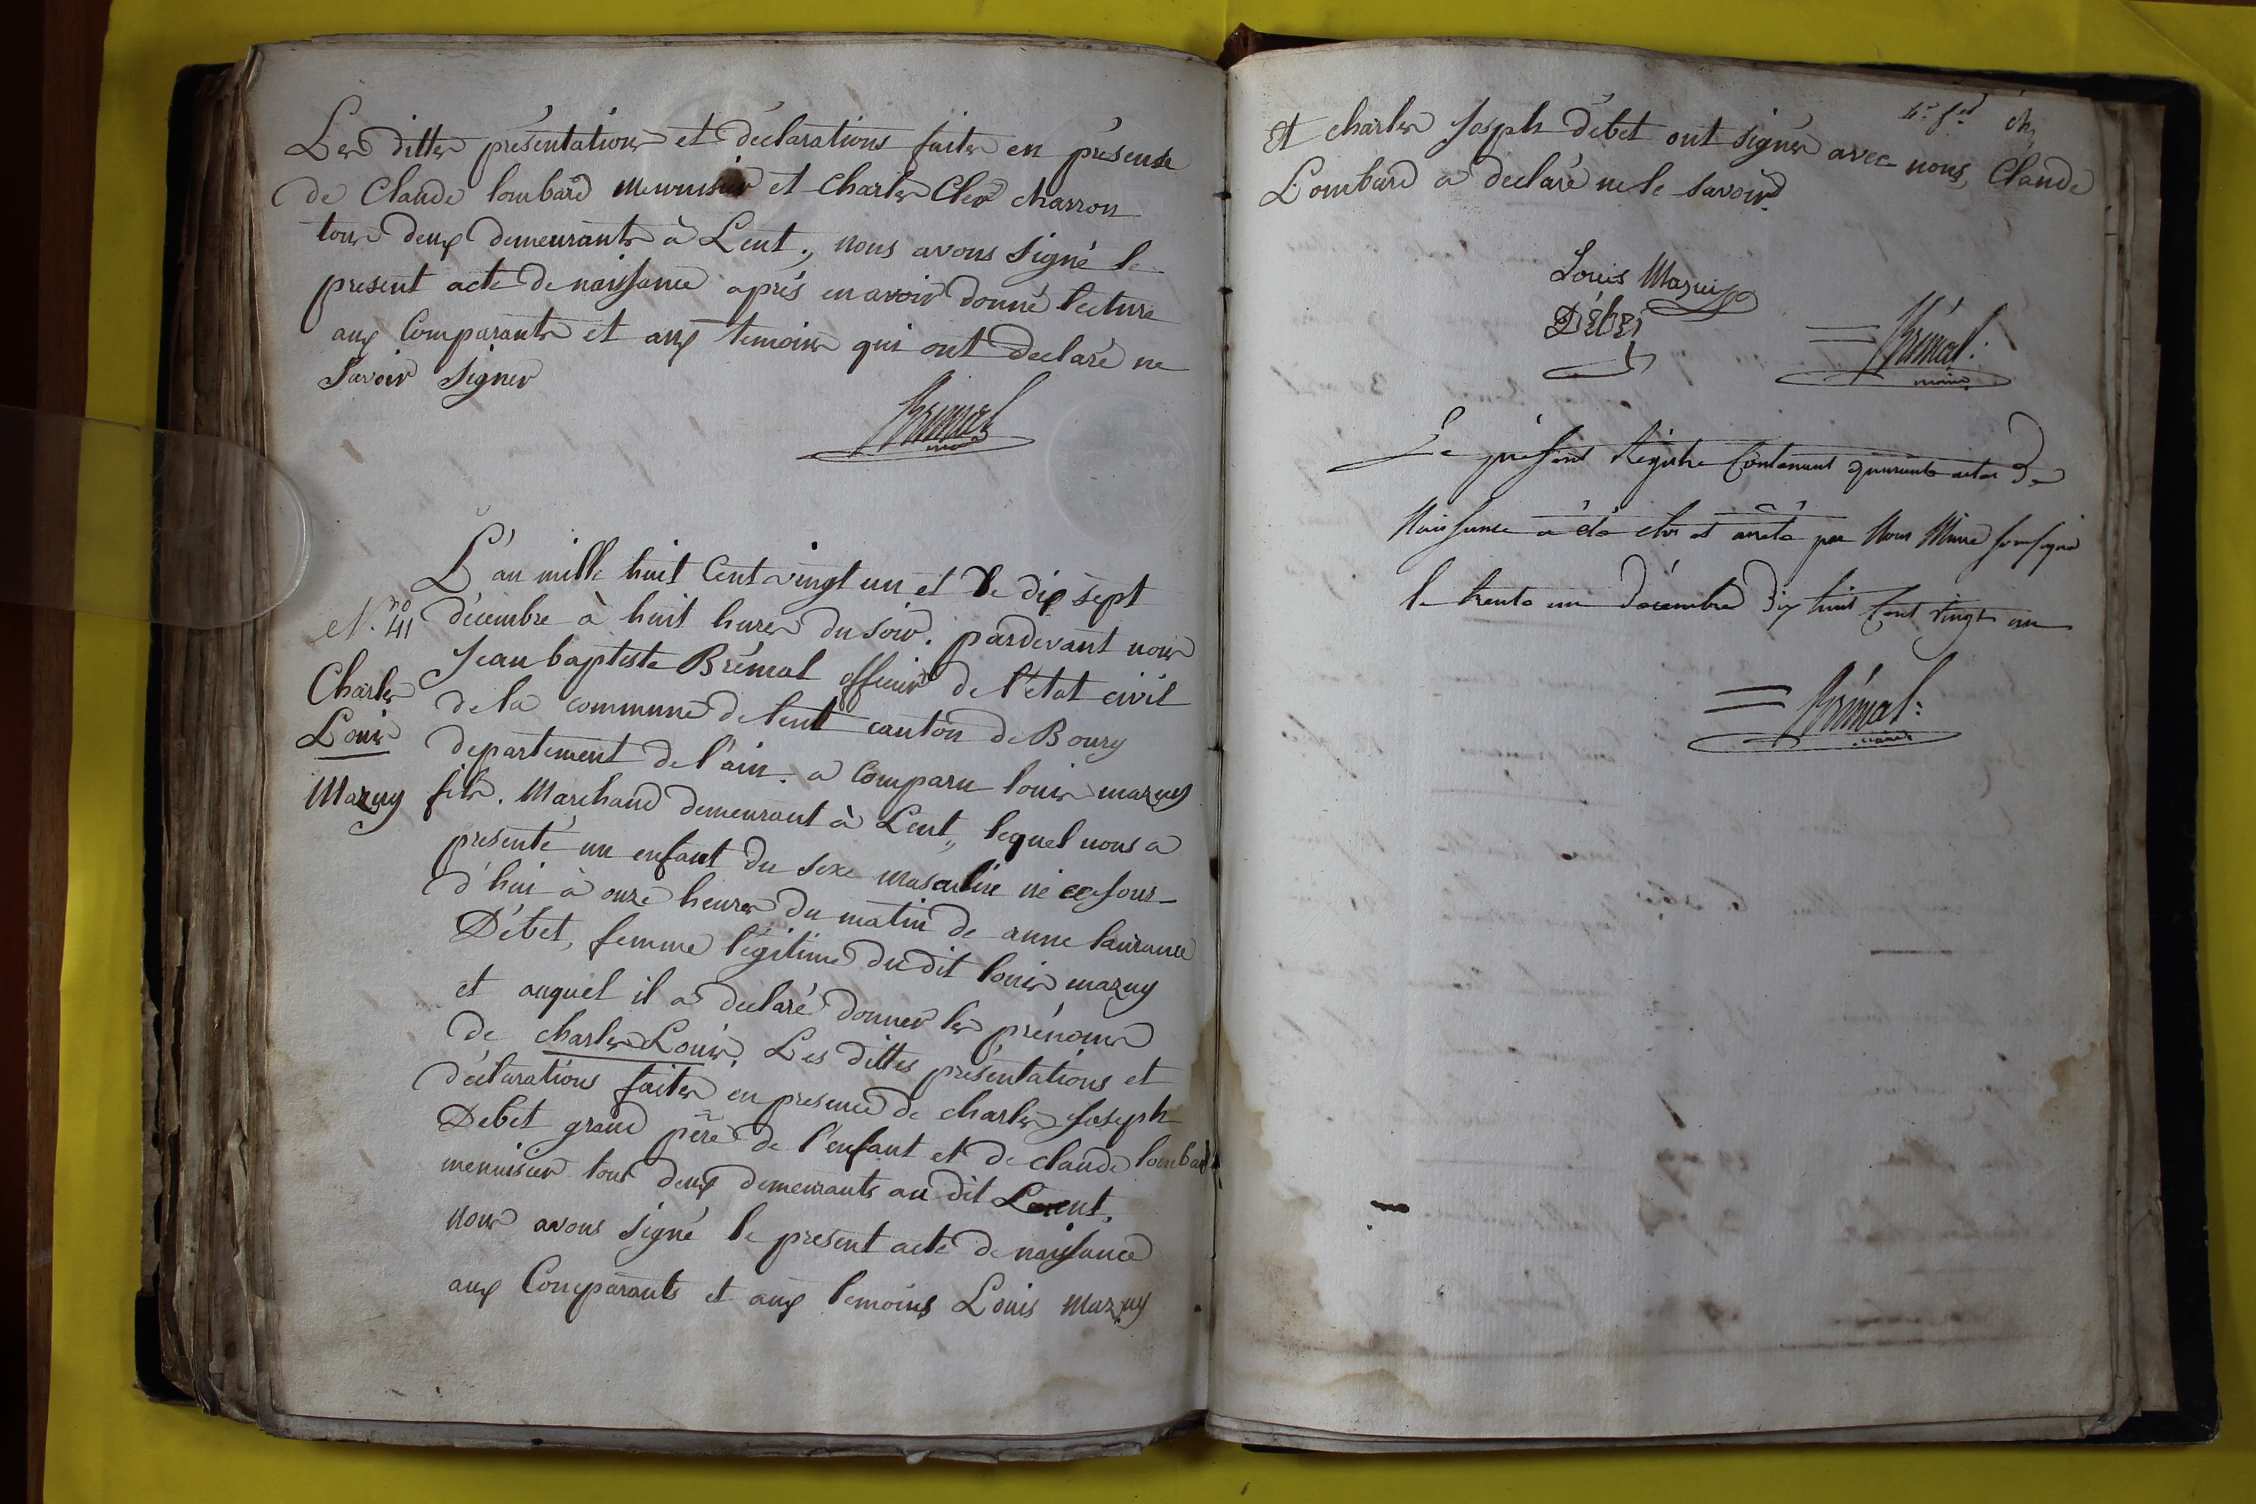 Les dittes présentations et déclarations faites en présence
de Claude lombard menuisier et Charles Cler charron
tous deux demeurants à Lent., nous avons signé le
present acte de naissance après en avoir donné lecture
aux Comparants et aux temoins qui ont declaré ne
Savoir Signer
Brémal
maire
L'an mille huit Cent vingt un et le dix sept
N.ro 41
décembre à huit hures du soir. pardevant nous
Jean baptiste Brémal officier de l'état civil
Charles
de la commune de lent canton de Bourg
Louis
departement de l'ain. a Comparu louis mazuy
Mazuy
fils. Marchand demeurant à Lent, lequel nous a
présenté un enfant du sexe masculin né ce Jour-
d'hui à onze heures du matin de anne laurance
Débet, femme légitime du dit louis mazuy
et auquel il a declaré donner les prénoms
de charles Louis. Les dittes présentations et
déclarations faites en presence de charles Joseph
Debet grand père de l'enfant et de claude lombard
menuisier tous deux demeurants au dit Lent.
nous avons signé le present acte de naissance
aux Comparants et aux temoins Louis mazuy
et charles Joseph débet ont signés avec nous, Claude
Lombard a declaré ne le savoir
Louis Mazuy
Débet
Brémal
maire
Le présent Registre Contenant quarante actes de
Naissance a été clos et arreté par Nous Maire soussigné
le trente un décembre dix huit Cent vingt un
Brémal
maire